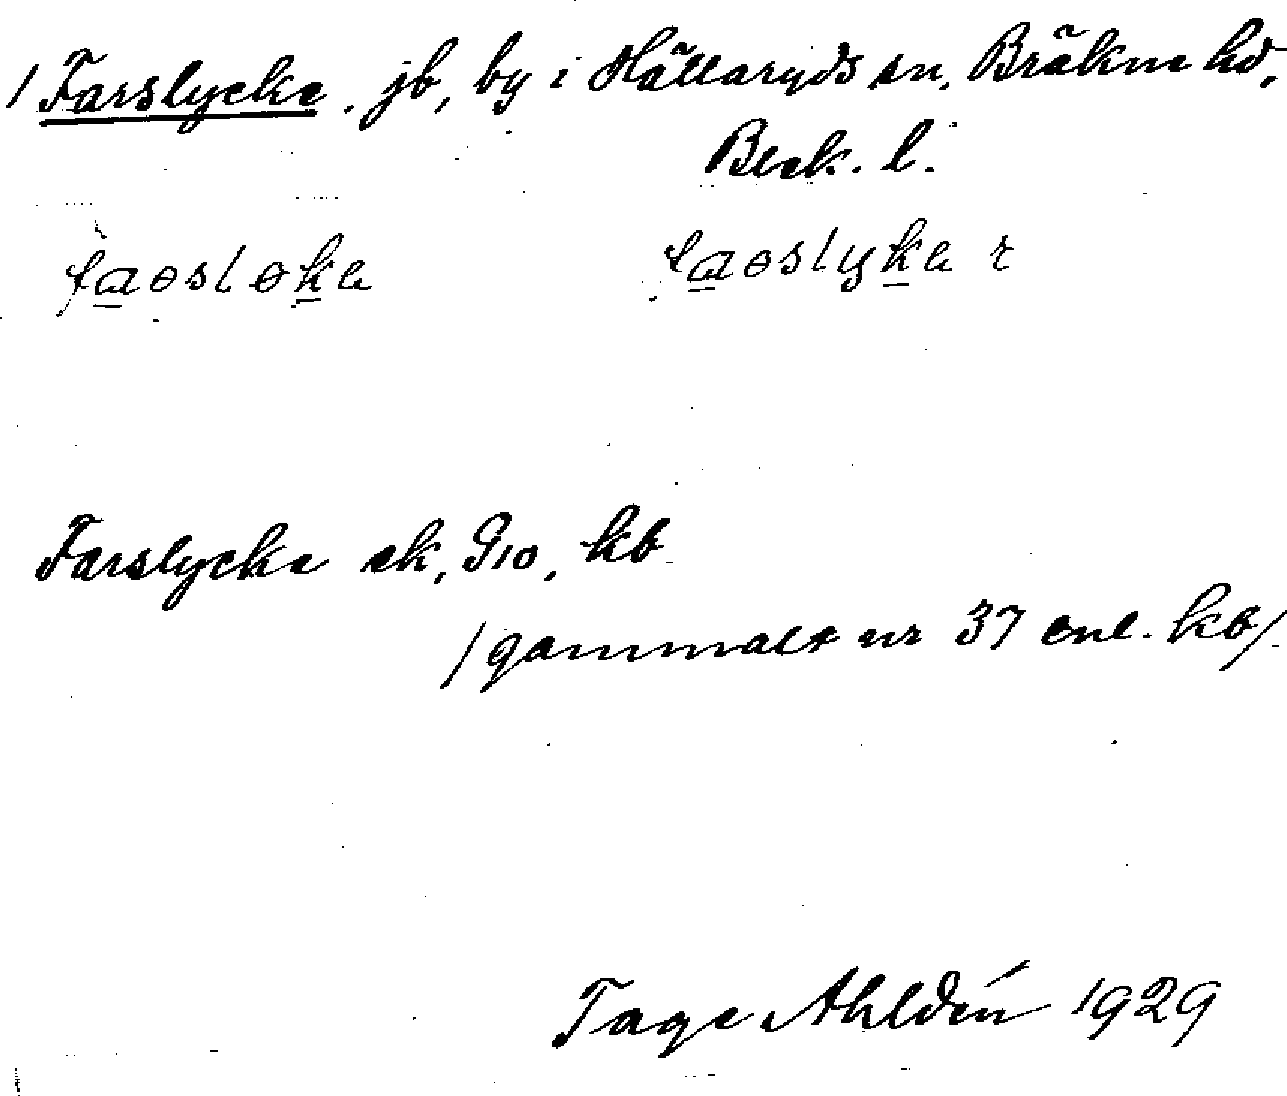 / Farslycke. jb, by i Hällaryds sn, Bräkne hd,
Blek. l.
faɵsløka faɵslyka r
Farslycke ek, G10, kb
/gammalt nr 37 enl. kb/.
Tage Ahldén 1929